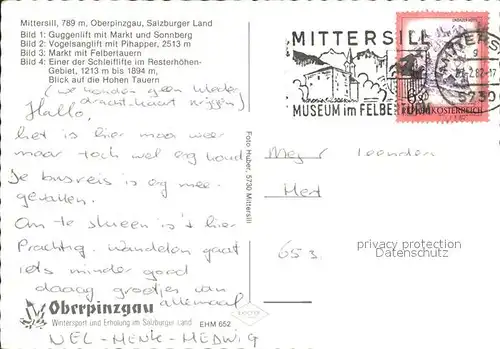 Mittersill, 789 m, Oberpinzgau, Salzburger Land
Bild 1: Guggenlift mit Markt und Sonnberg
Bild 2: Vogelsanglift mit Pihapper, 2513 m
Bild 3: Markt mit Felbertauern
Bild 4: Einer der Schleiflifte im Resterhöhen-
Gebiet, 1213 m bis 1894 m,
Blick auf die Hohen Tauern
Hallo,
het is hier maar weer
maar toch wel erg koud
De busreis is erg mee
gevallen.
Om te skieen is 's hier
Prachtig. Wandelen gaat
iets minder goed
daaag groetjes van
allemaal
NEL - HENK - HEDWIG
Oberpinzgau
Wintersport und Erholung im Salzburger Land
EHM 652
Foto Huber, 5730 Mittersill
MITTERSILL
MUSEUM im FELBERTURM
5730
REPUBLIK ÖSTERREICH
Hert
653
privacy protection
Datenschutz